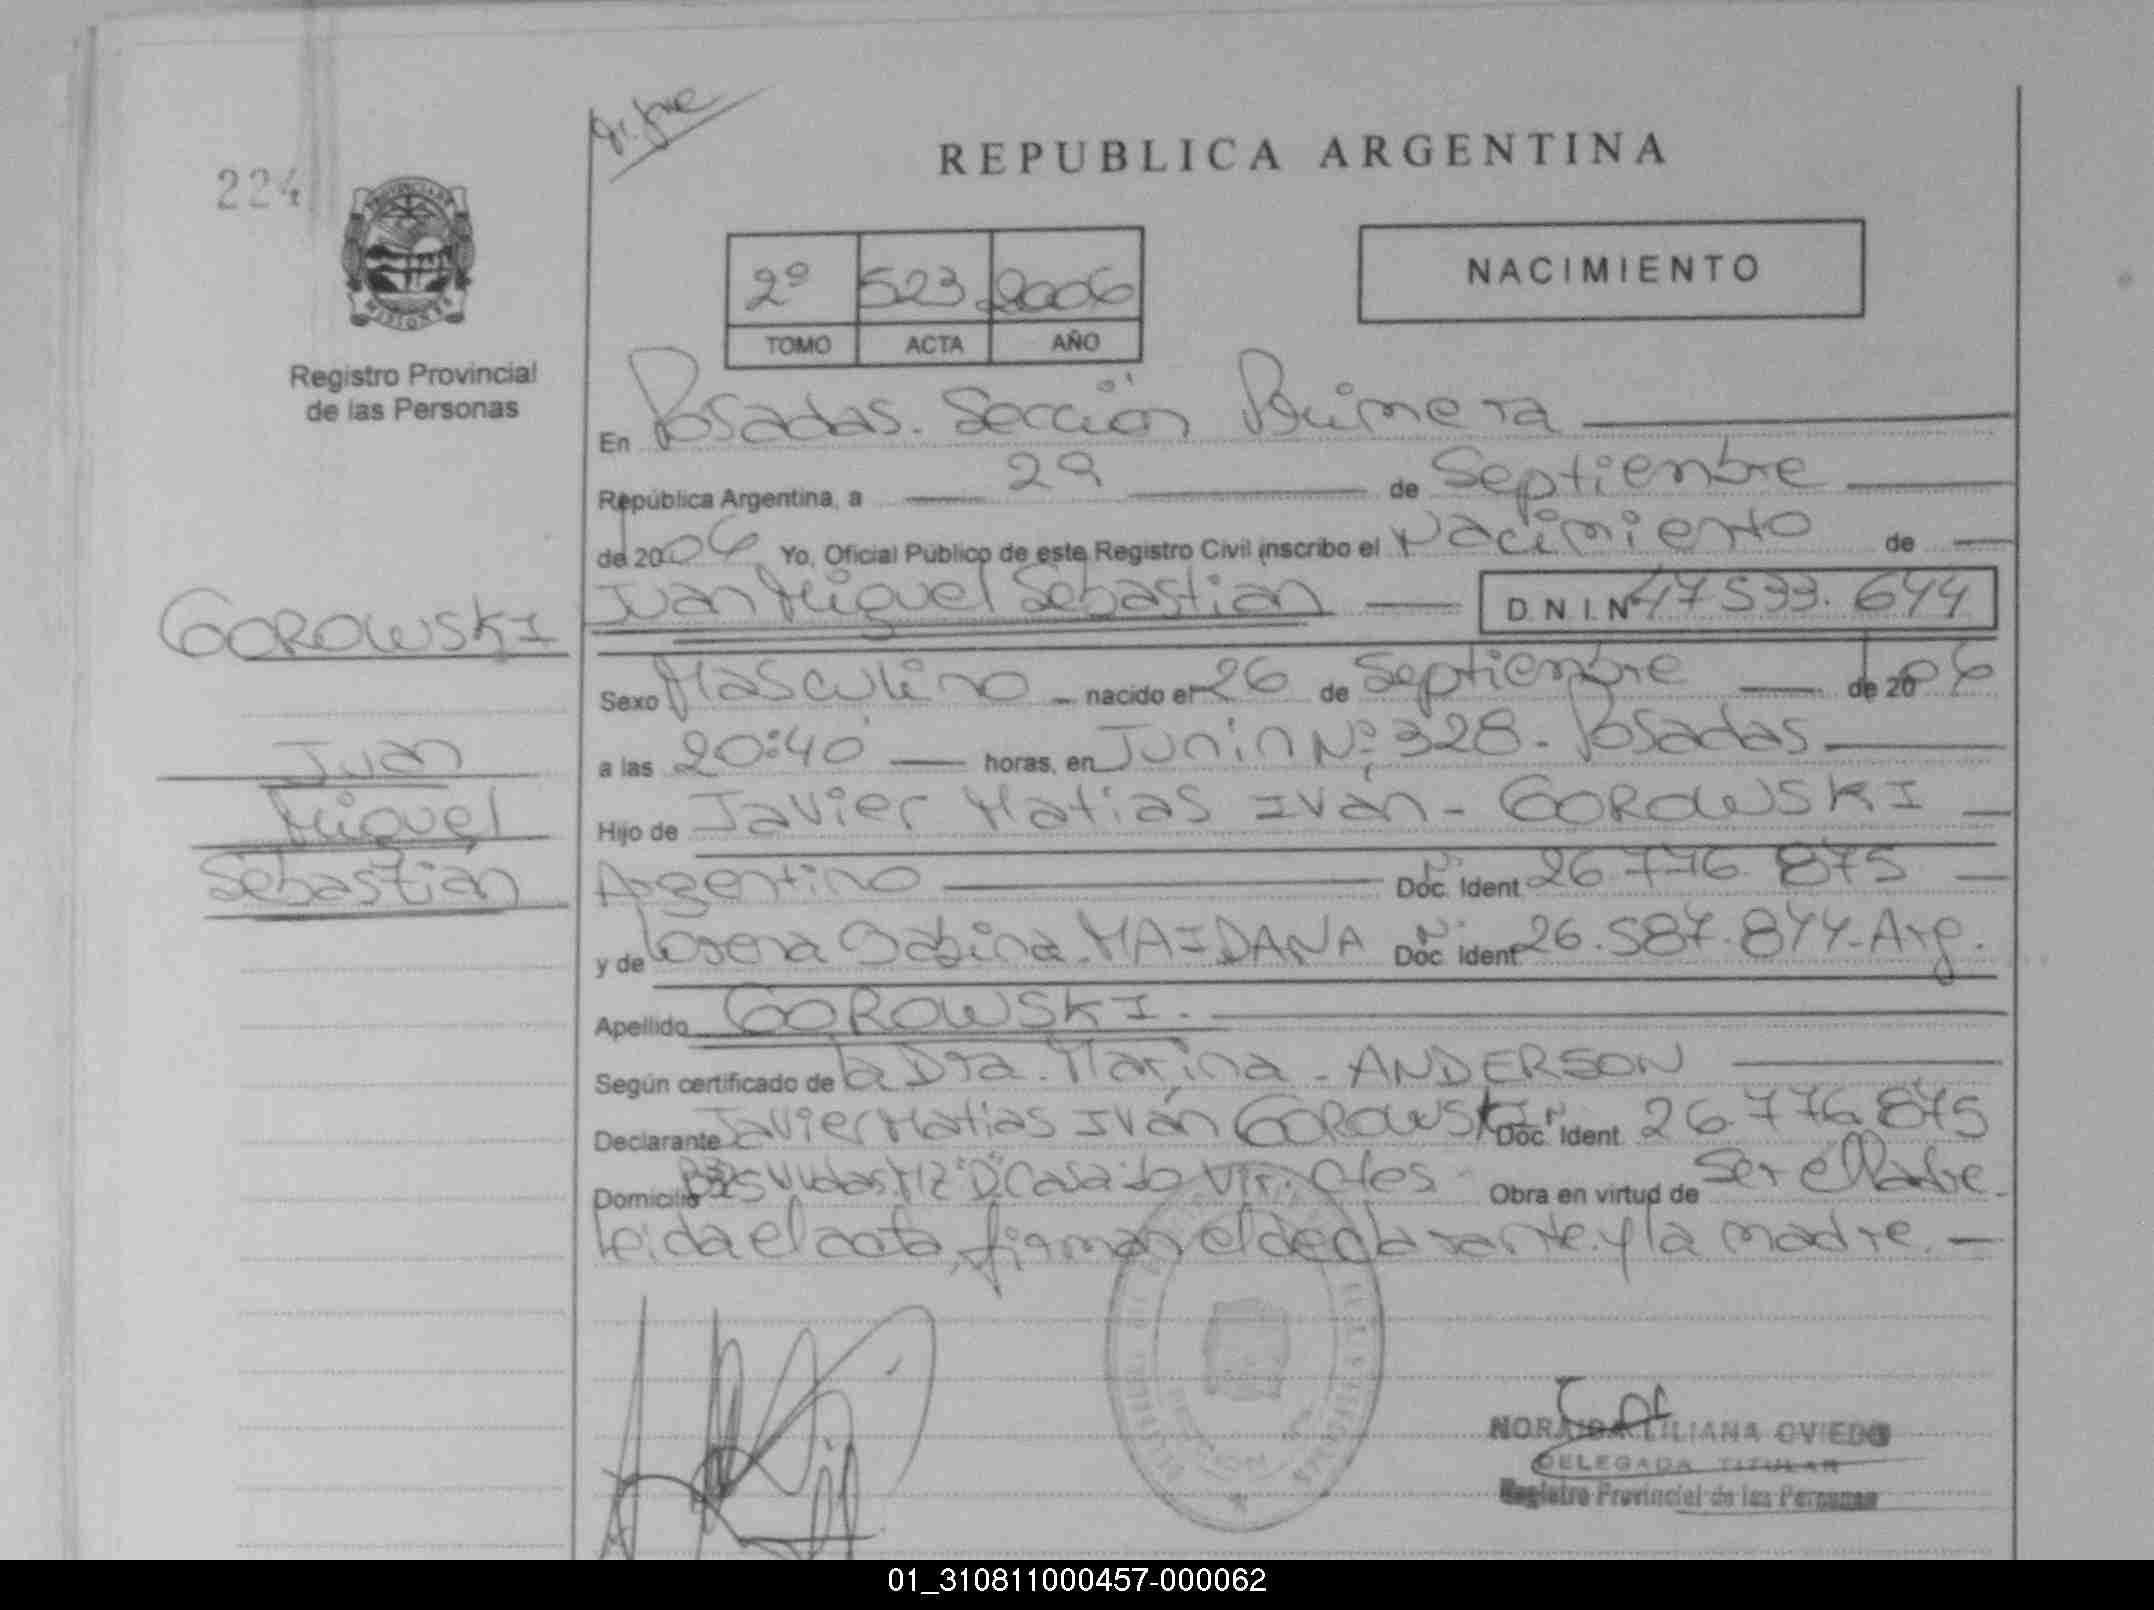 224
REPUBLICA ARGENTINA
PROVINCIA DE
MISIONES
Registro Provincial
de las Personas
2º 523 2006
TOMO ACTA AÑO
NACIMIENTO
En Posadas. Sección Primera
República Argentina, a 29 de Septiembre
de 2006 Yo, Oficial Público de este Registro Civil inscribo el Nacimiento de
Juan Miguel Sebastian D.N.I. Nº 47533.644
GOROWSKI
Juan
Miguel
Sebastián
Sexo Masculino nacido el 26 de Septiembre de 2006
a las 20:40 horas, en Junin Nº 328 - Posadas
Hijo de Javier Matias Iván - GOROWSKI
Argentino Doc. Ident. 26.776.875
y de Sabina MAIDANA Doc. Ident. 26.587.844 - Arg.
Apellido GOROWSKI.
Según certificado de la Dra. Marina - ANDERSON
Declarante Javier Matias Iván GOROWSKI Doc. Ident. 26.776.875
Domicilio Casa Obra en virtud de Ser el Padre.
Leida el acta, firman el declarante y la madre.
NORA LILIANA OVIEDO
DELEGADA TITULAR
Registro Provincial de las Personas
01_310811000457-000062